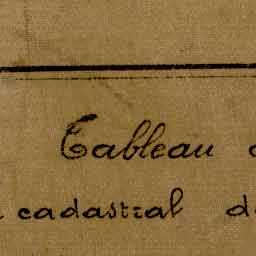 Tableau
cadastral